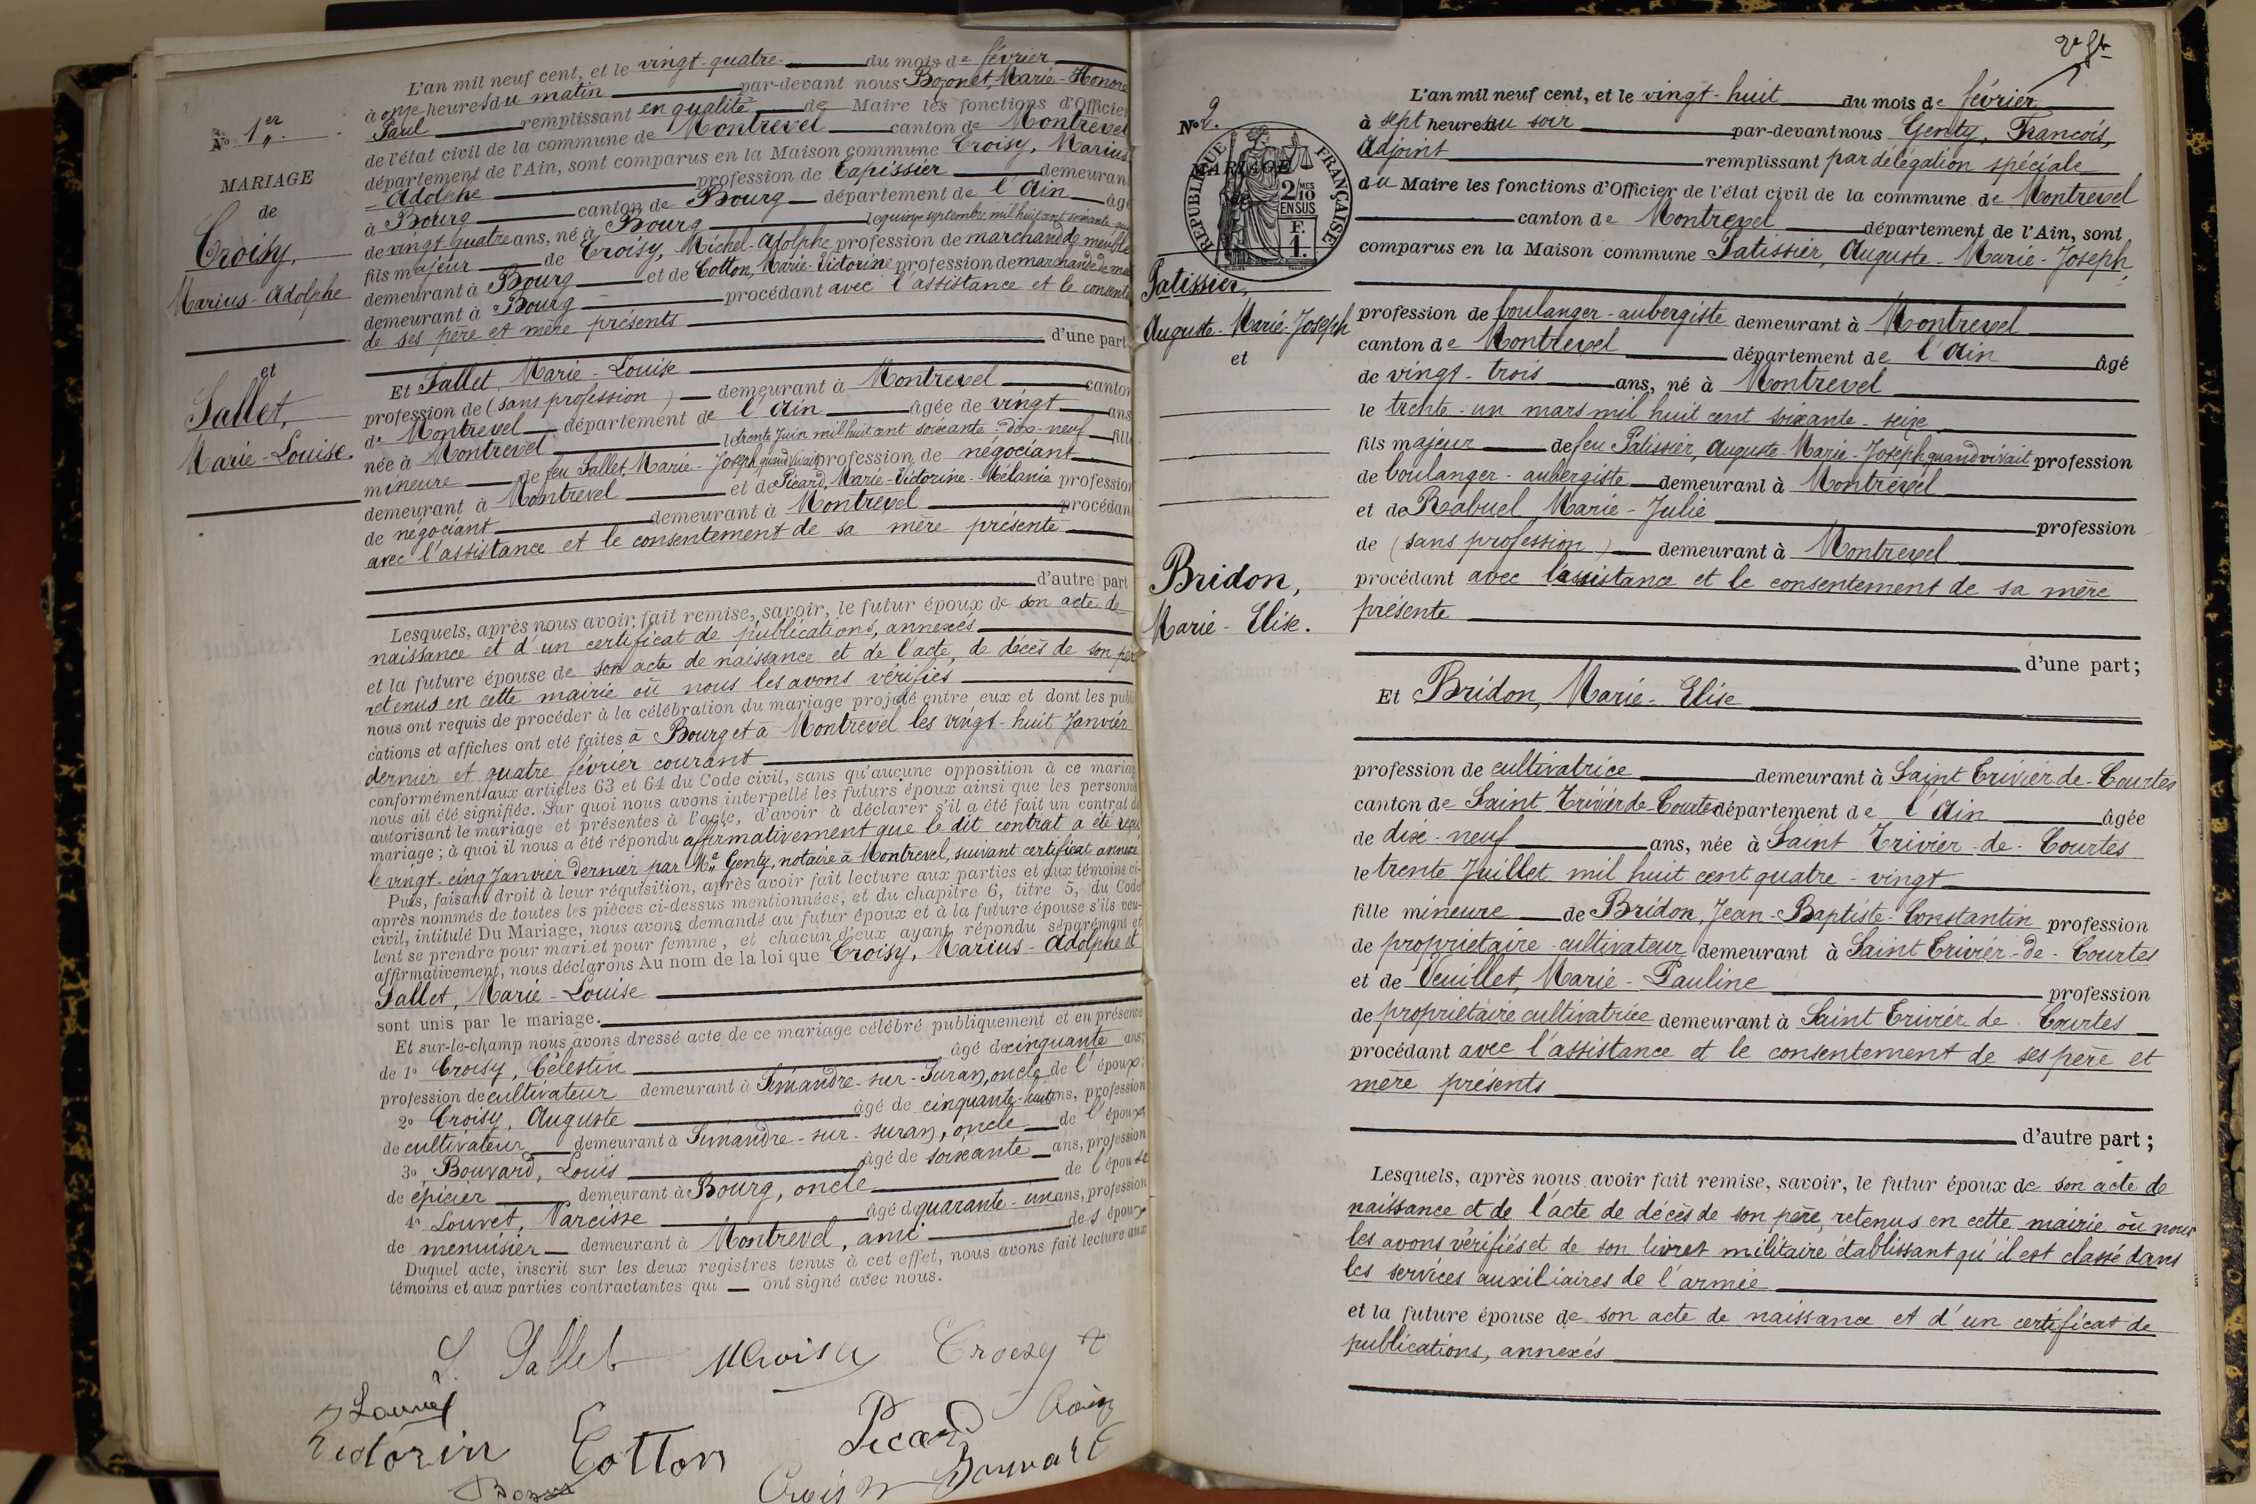 No 1er
MARIAGE
de
Croisy,
Marius-Adolphe
et
Sallet,
Marie-Louise.
L'an mil neuf cent, et le vingt-quatre du mois de février
à onze heures du matin par-devant nous Bozonet, Marie-Honoré
Paul remplissant en qualité de Maire les fonctions d'Officier
de l'état civil de la commune de Montrevel canton de Montrevel
département de l'Ain, sont comparus en la Maison commune Croisy, Marius
-Adolphe profession de Tapissier demeuran
à Bourg canton de Bourg département de l'Ain âgé
de vingt quatre ans, né à Bourg le quinze septembre mil huit cent soixante
fils majeur de Croisy, Michel-Adolphe profession de marchand de meuble
demeurant à Bourg et de Cotton, Marie-Victorine profession de marchande de
demeurant à Bourg procédant avec l'assistance et le consent
de ses père et mère présents
d'une part
Et Sallet, Marie-Louise
profession de (sans profession) demeurant à Montrevel canton
de Montrevel département de l'Ain âgée de vingt ans
née à Montrevel le trente Juin mil huit cent soixante-dix-neuf fille
mineure de feu Sallet, Marie-Joseph quand vivait profession de négociant
demeurant à Montrevel et de Picard, Marie-Victorine-Mélanie profession
de négociant demeurant à Montrevel procédan
avec l'assistance et le consentement de sa mère présente
d'autre part
Lesquels, après nous avoir fait remise, savoir, le futur époux de son acte de
naissance et d'un certificat de publications, annexés
et la future épouse de son acte de naissance et de l'acte, de décès de son père
retenus en cette mairie où nous les avons vérifiés
nous ont requis de procéder à la célébration du mariage projeté entre eux et dont les publi
cations et affiches ont été faites à Bourg et à Montrevel les vingt-huit Janvier
dernier et quatre février courant
conformément aux articles 63 et 64 du Code civil, sans qu'aucune opposition à ce mariage
nous ait été signifiée. Sur quoi nous avons interpellé les futurs époux ainsi que les personnes
autorisant le mariage et présentes à l'acte, d'avoir à déclarer s'il a été fait un contrat de
mariage ; à quoi il nous a été répondu affirmativement que le dit contrat a été reçu
le vingt-cinq Janvier dernier par Me Genty, notaire à Montrevel, suivant certificat annexé
Puis, faisant droit à leur réquisition, après avoir fait lecture aux parties et aux témoins ci-
après nommés de toutes les pièces ci-dessus mentionnées, et du chapitre 6, titre 5, du Code
civil, intitulé Du Mariage, nous avons demandé au futur époux et à la future épouse s'ils veu-
lent se prendre pour mari et pour femme, et chacun d'eux ayant répondu séparément et
affirmativement, nous déclarons Au nom de la loi que Croisy, Marius-Adolphe et
Sallet, Marie-Louise
sont unis par le mariage.
Et sur-le-champ nous avons dressé acte de ce mariage célébré publiquement et en présence
de 1o Croisy, Célestin âgé de cinquante ans,
profession de cultivateur demeurant à Simandre-sur-Suran, oncle de l'époux.
2o Croisy, Auguste âgé de cinquante-huit ans, profession
de cultivateur demeurant à Simandre-sur-suran, oncle de l'époux
3o Bouvard, Louis âgé de soixante ans, profession
de épicier demeurant à Bourg, oncle de l'épouse
4o Louvet, Narcisse âgé de quarante-un ans, profession
de menuisier demeurant à Montrevel, ami des époux
Duquel acte, inscrit sur les deux registres tenus à cet effet, nous avons fait lecture aux
témoins et aux parties contractantes qui ont signé avec nous.
L. Sallet MCroisy Croizy
Louvet
Victorin Cotton Picard Croizy
Croisy Bouvard
2e ft
No 2.
MARIAGE
RÉPUBLIQUE FRANÇAISE
2/10MES
EN SUS
F.
1.
Patissier,
Auguste-Marie-Joseph
et
Bridon,
Marie-Elise.
L'an mil neuf cent, et le vingt-huit du mois de février
à sept heures du soir par-devant nous Genty, François,
Adjoint remplissant par délégation spéciale
du Maire les fonctions d'Officier de l'état civil de la commune de Montrevel
canton de Montrevel département de l'Ain, sont
comparus en la Maison commune Patissier, Auguste-Marie-Joseph,
profession de boulanger-aubergiste demeurant à Montrevel
canton de Montrevel département de l'Ain âgé
de vingt-trois ans, né à Montrevel
le trente-un mars mil huit cent soixante-seize
fils majeur de feu Patissier, Auguste-Marie-Joseph quand vivait profession
de boulanger-aubergiste demeurant à Montrevel
et de Rabuel Marie-Julie profession
de (sans profession) demeurant à Montrevel
procédant avec l'assistance et le consentement de sa mère
présente
d'une part;
Et Bridon, Marie-Elise
profession de cultivatrice demeurant à Saint Trivier-de-Courtes
canton de Saint Trivier de Courtes département de l'Ain âgée
de dix-neuf ans, née à Saint Trivier-de-Courtes
le trente Juillet mil huit cent quatre-vingt
fille mineure de Bridon, Jean-Baptiste-Constantin profession
de propriétaire-cultivateur demeurant à Saint Trivier-de-Courtes
et de Veuillet, Marie-Pauline profession
de propriétaire cultivatrice demeurant à Saint Trivier de Courtes
procédant avec l'assistance et le consentement de ses père et
mère présents
d'autre part ;
Lesquels, après nous avoir fait remise, savoir, le futur époux de son acte de
naissance et de l'acte de décès de son père, retenus en cette mairie où nous
les avons vérifiés et de son livret militaire établissant qu'il est classé dans
les services auxiliaires de l'armée
et la future épouse de son acte de naissance et d'un certificat de
publications, annexés